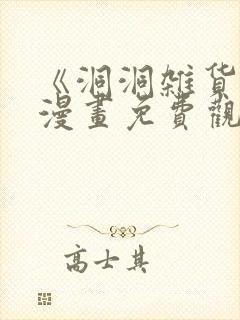 《洞洞雑货
漫畫免費觀
高士其